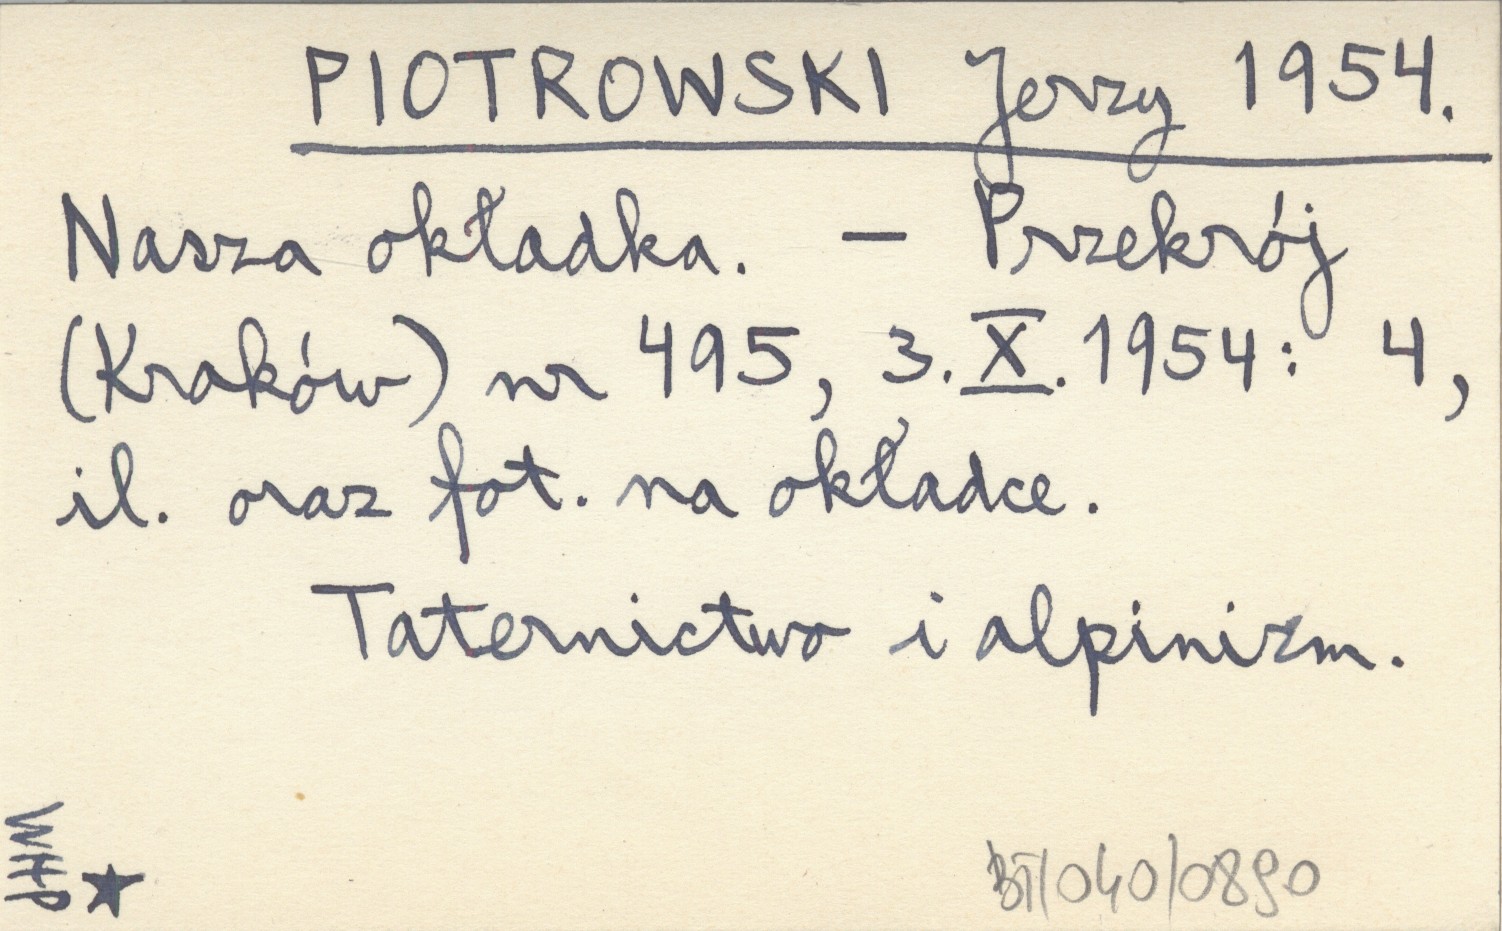 PIOTROWSKI Jerzy 1954.
Nasza okładka. — Przekrój
(Kraków) nr 495, 3.X.1954: 4,
il. oraz fot. na okładce.
Taternictwo i alpinizm.
WHP ★
BT/040/0890